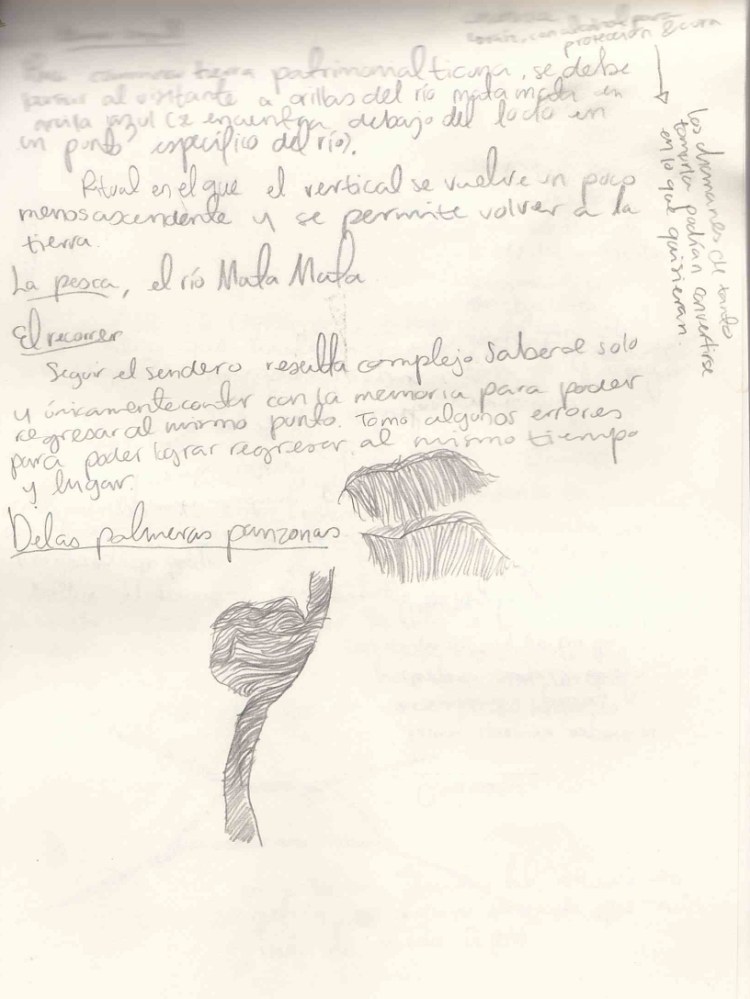 protección & cura
tierra patrimonial ticuna, se debe
al visitante a orillas del río mata mata en
arcilla azul (se encuentra debajo del lodo en
un punto específico del río).
Ritual en el que el vertical se vuelve un poco
menos ascendente y se permite volver a la
tierra.
La pesca, el río Mata Mata
El recorrer
Seguir el sendero resulta complejo saberse solo
y únicamente contar con la memoria para poder
regresar al mismo punto. Tomo algunos errores
para poder lograr regresar al mismo tiempo
y lugar.
De las palmeras panzonas
los chamanes de tanto
tomarla podían convertirse
en lo que quisieran.